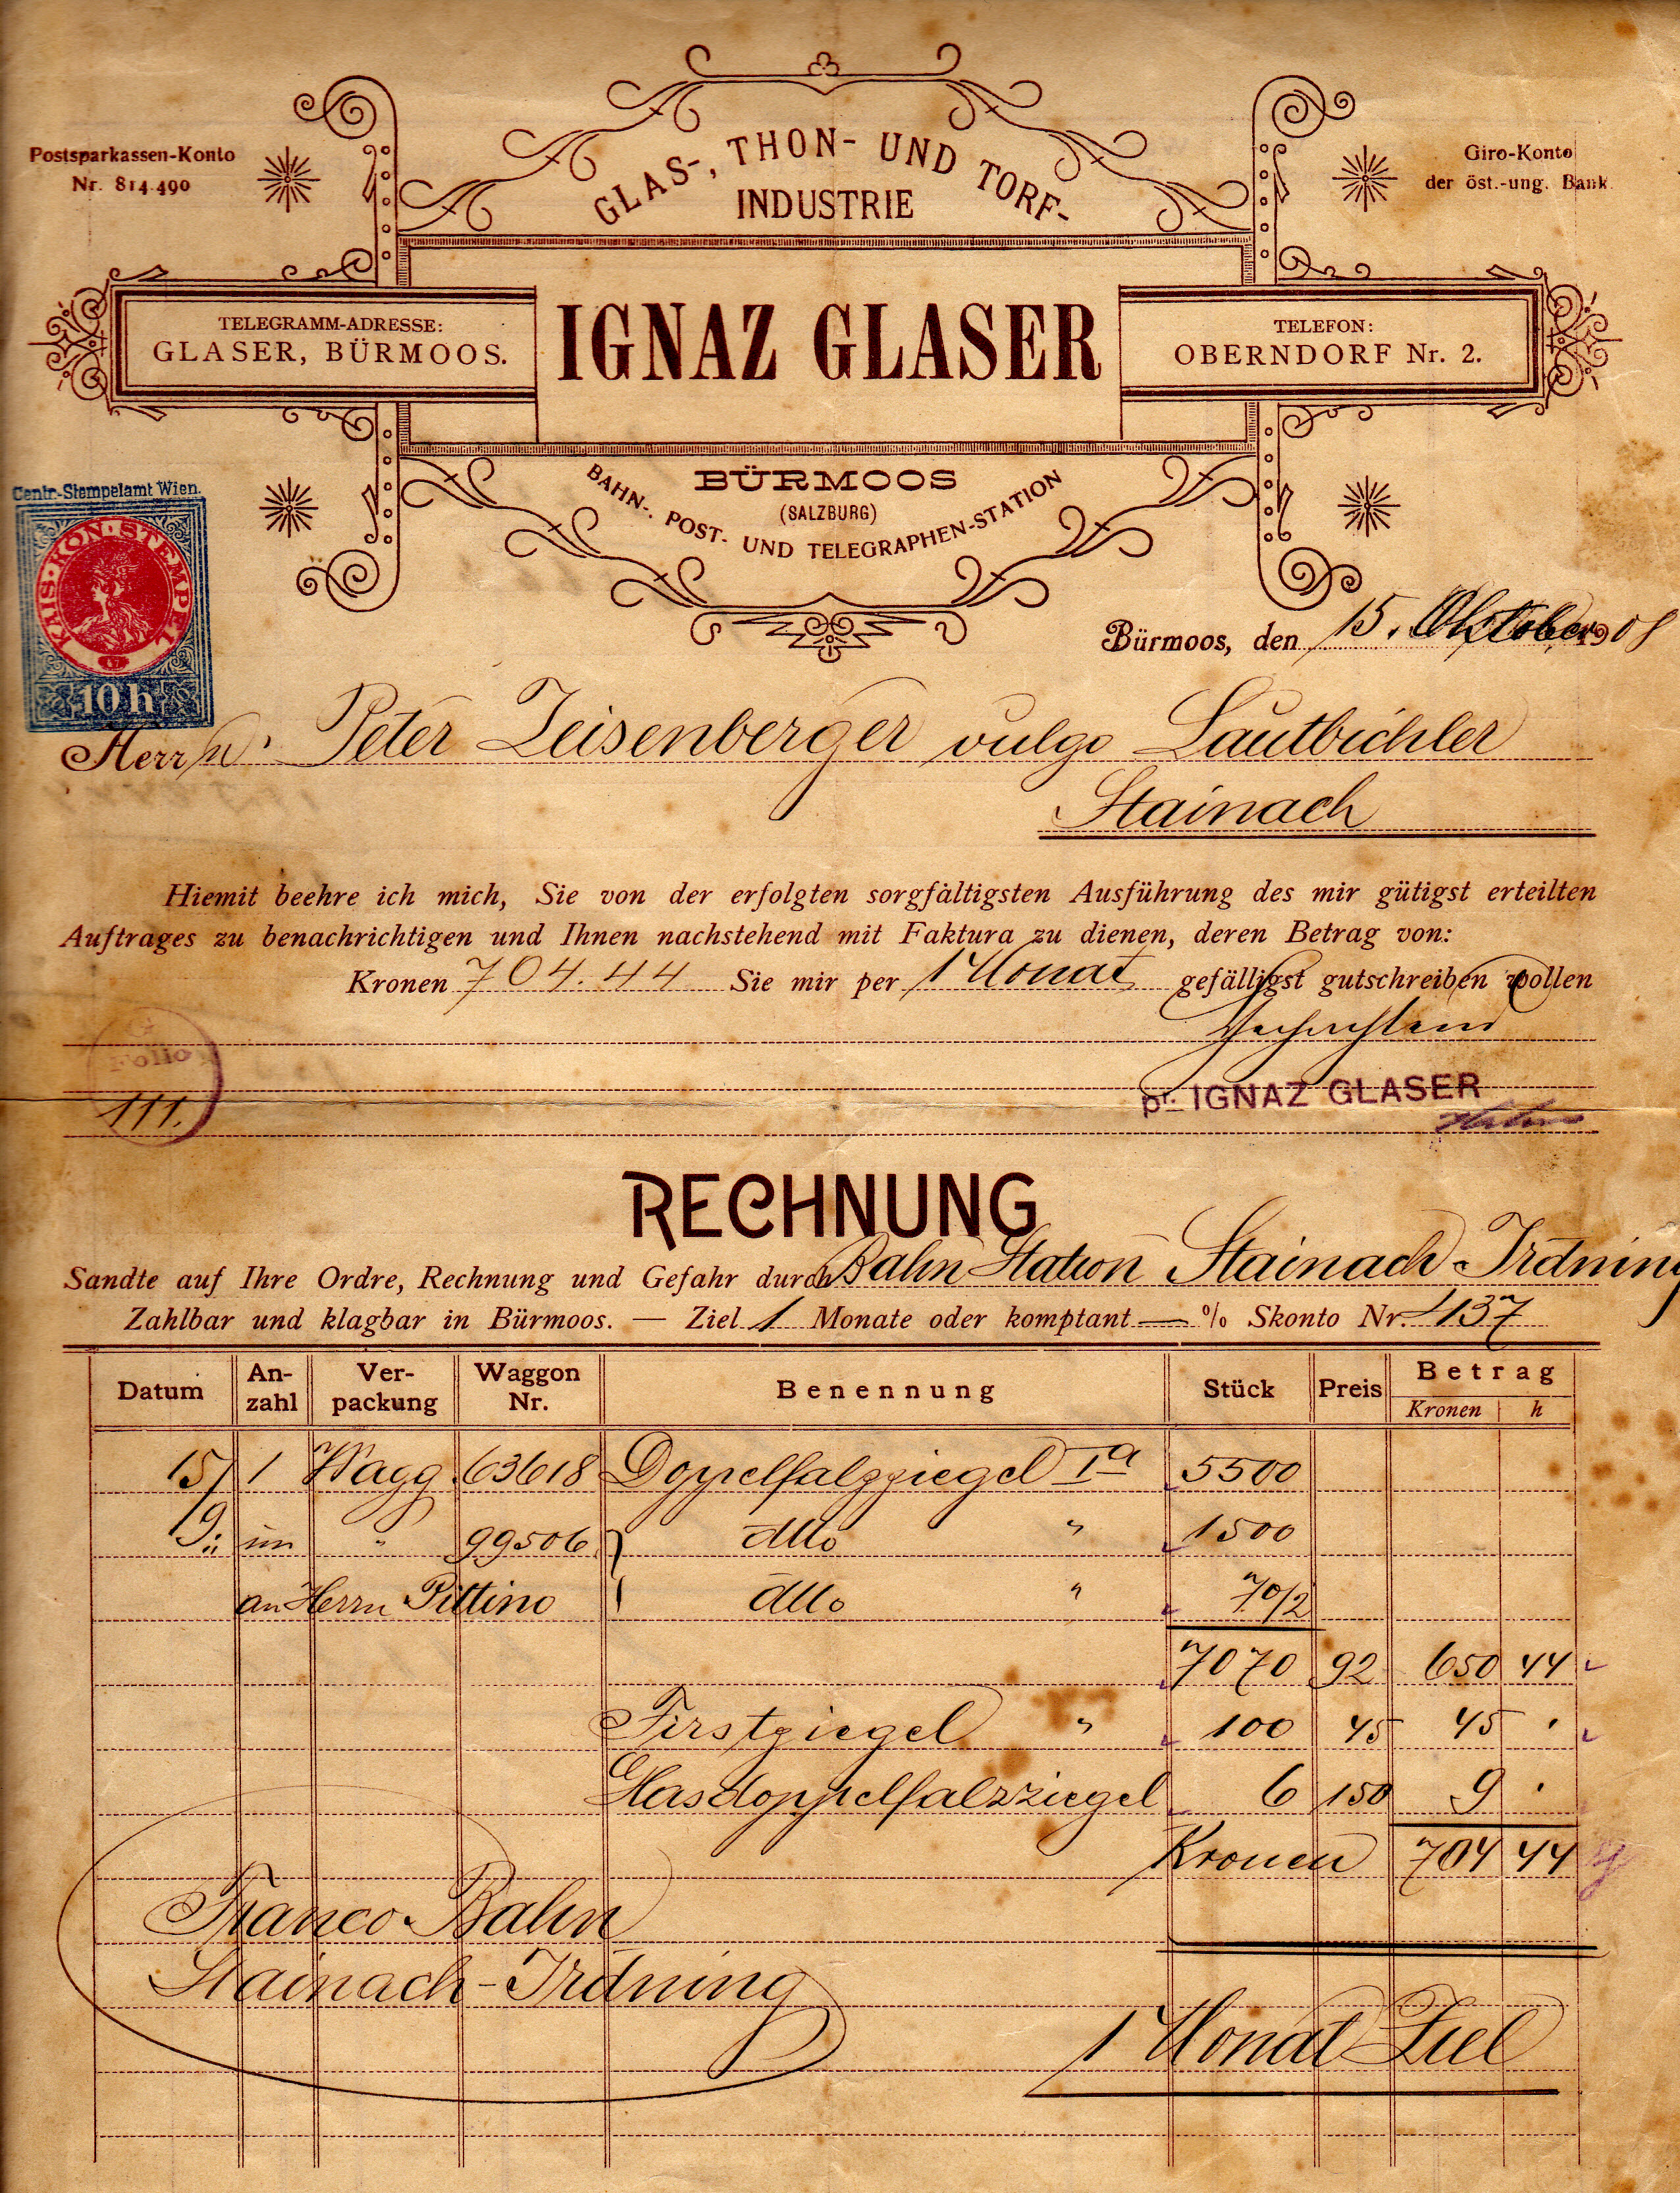 Postsparkassen-Konto
Nr. 814.490
GLAS-, THON- UND TORF-
INDUSTRIE
Giro-Konto
der öst.-ung. Bank.
TELEGRAMM-ADRESSE:
GLASER, BÜRMOOS.
IGNAZ GLASER
TELEFON:
OBERNDORF Nr. 2.
BÜRMOOS
(SALZBURG)
BAHN-, POST- UND TELEGRAPHEN-STATION
Centr.-Stempelamt Wien.
KAIS·KÖN·STEMPEL
10 h
Bürmoos, den 15. Oktober 1908
Herrn Peter Zeisenberger vulgo Lautbichler
Stainach
Hiemit beehre ich mich, Sie von der erfolgten sorgfältigsten Ausführung des mir gütigst erteilten
Auftrages zu benachrichtigen und Ihnen nachstehend mit Faktura zu dienen, deren Betrag von:
Kronen 704.44 Sie mir per 1 Monat gefälligst gutschreiben wollen
G
Folio
111.
pr. IGNAZ GLASER
RECHNUNG
Sandte auf Ihre Ordre, Rechnung und Gefahr durch Bahn Station Stainach-Irdning
Zahlbar und klagbar in Bürmoos. — Ziel 1 Monate oder komptant — % Skonto Nr. 1137
Datum An-zahl Ver-packung Waggon Nr. Benennung Stück Preis Betrag
Kronen h
15/ 1 Wagg. 63618 Doppelfalzziegel Ia 5500
9. im " 99506 dtto " 1500
an Herrn Pittino dtto " 70/2
7070 92 650 44
Firstziegel " 100 45 45 ·
Glasdoppelfalzziegel 6 150 9 ·
Kronen 704 44
Franco Bahn
Stainach-Irdning
1 Monat Ziel